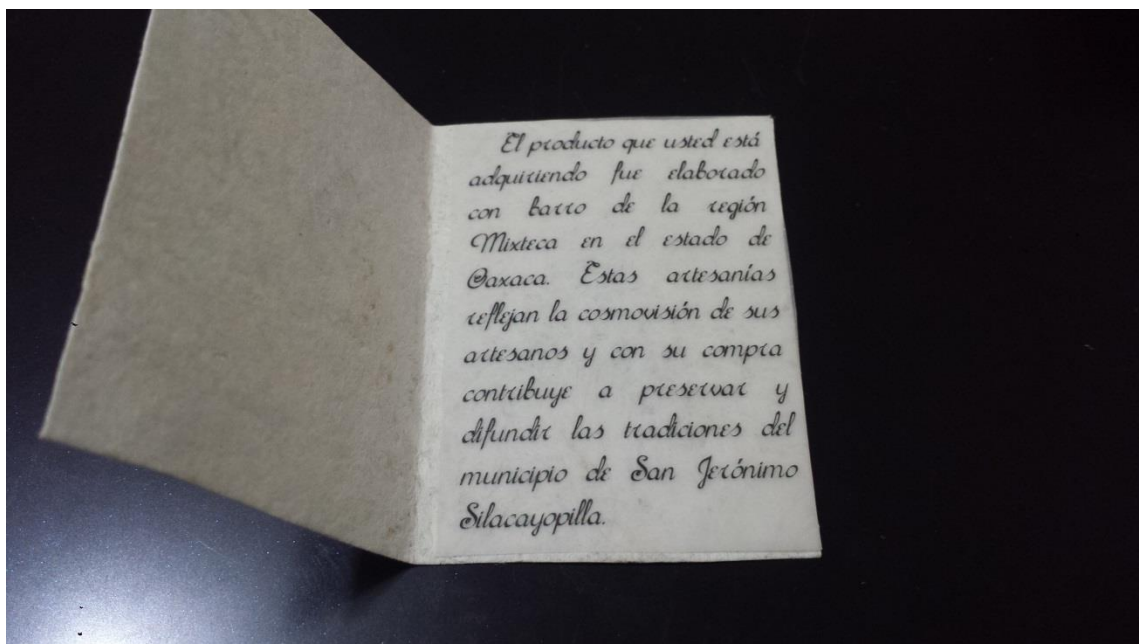 El producto que usted está
adquiriendo fue elaborado
con barro de la región
Mixteca en el estado de
Oaxaca. Estas artesanías
reflejan la cosmovisión de sus
artesanos y con su compra
contribuye a preservar y
difundir las tradiciones del
municipio de San Jerónimo
Silacayopilla.